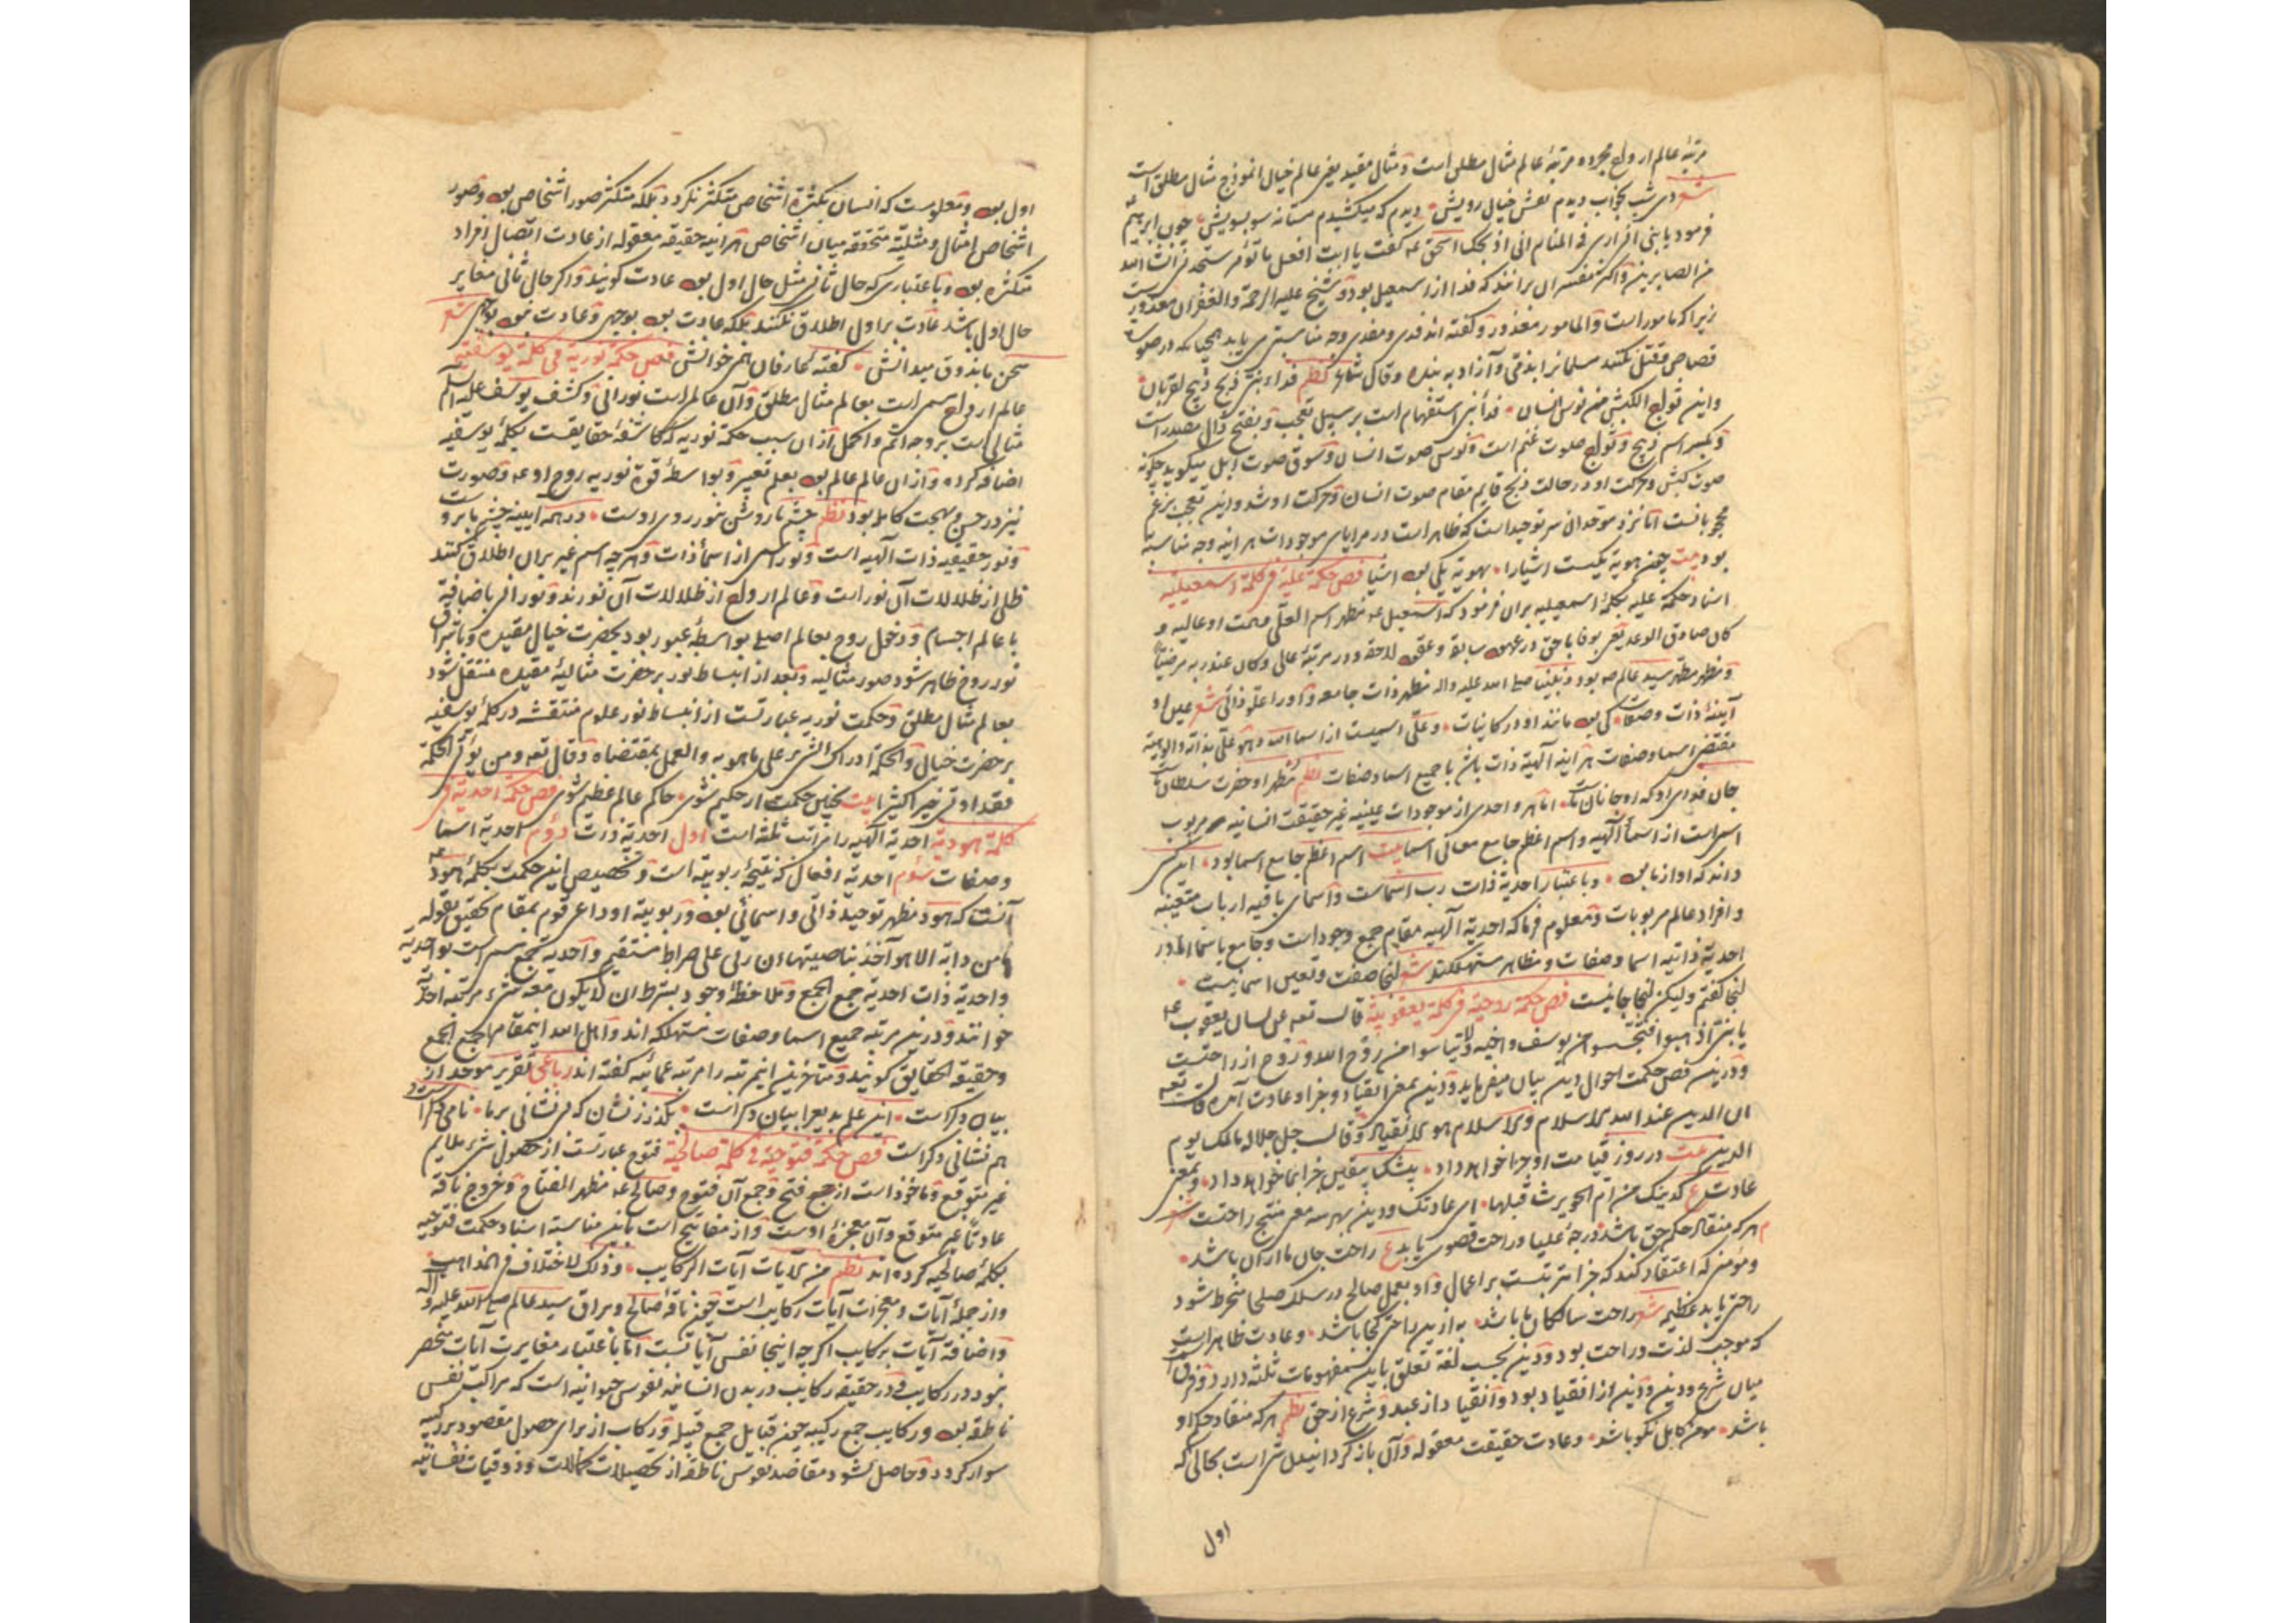 مرتبهٔ عالم ارواح مجرده مرتبهٔ عالم مثال مطلق است و مثال مقید یعنی عالم خیال انموذج مثال مطلق است
شعر دی شب بخواب دیدم نقش خیال رویش دیدم که میکشیدم مستانه سو بسویش چون ابرهیم
فرمود یا بنی انی اری فی المنام انی اذبحک اسحق عه گفت یا ابت افعل ما تؤمر ستجدنی ان شاء الله
من الصابرین و اکثر مفسران برانند که فدا از اسمعیل بود و شیخ علیه الرحمة والغفران معذور است
زیرا که مامور است والمامور معذور و گفته اند فدی و مفدی وجه مناسبتی می باید همچنانکه در صورت
قصاص مقتل نکنند مسلمانرا بذمی و آزاد به بنده وقال شاعر نظم فداء نبی ذبح ذبیح لقربان
واین ثواج الکبش من نوس انسان فداء نبی استفهام است بر سبیل تعجب و بفتح ذال مصدر است
و بکسر اسم ذبیح و ثواج صوت غنم است و نوس صوت انسان و سوق صوت ابل میگوید چگونه
صوت کبش و حرکت او در حالت ذبح قایم مقام صوت انسان و حرکت او شد و این تعجب بزعم
محجوبانست اما نزد موحدان سر توحید است که ظاهر است در مرایای موجودات هر اینه وجه مناسبت
بود بیت چون هویة یکیست اشیارا بهویة یکی بود اشیا فص حکمة علیة فی کلمة اسمعیلیه
اسناد حکمة علیه بکلمهٔ اسمعیلیه بران فرمود که اسمعیل عه مظهر اسم العلی و همت او عالیه و
کان صادق الوعد یعنی بوفا با حق در عهود سابق و عقود لاحق و در مرتبهٔ عالی وکان عند ربه مرضیا
و مظهر مطهر سید عالم صه بود و نبینا صلی الله علیه واله مظهر ذات جامعه و او را علو ذاتی شعر عین او
آینهٔ ذات و صفات کی بود مانند او در کاینات و علی اسمیست از اسما الله و هو علی بذاته والوهیة
مقتضی اسما و صفات هر اینه آلهیة ذات باشد با جمیع اسما و صفات نظم مظهر او حضرت سلطان ماست
جان فدای او که او جانان ماست اما هر واحدی از موجودات عینیه غیر حقیقت انسانیه مربوب
اسمی است از اسماء آلهیه و اسم اعظم جامع معانی اسما بیت اسم اعظم جامع اسما بود این کسی
داند که او از ما بود و باعتبار احدیة ذات رب اسماست و اسمای باقیه ارباب متعینه
و افراد عالم مربوبات و معلوم فرما که احدیة آلهیه مقام جمع وجود است و جامع باسما اما در
احدیة ذاتیه اسما و صفات و مظاهر مستهلکند شعر اینجا صفت و تعین اسما نیست
اینجا گفتم ولیکن اینجا جا نیست فص حکمة روحیة فی کلمة یعقوبیة قال تعه عن لسان یعقوب عه
یا بنی اذهبوا فتحسسوا من یوسف واخیه ولا تیأسوا من روح الله و روح از راحتست
و درین فص حکمت احوال دین بیان میفرماید و دین بمعنی انقیاد و جزا و عادت آمده قال تعه
ان الدین عند الله الاسلام والاسلام هو الانقیاد وقال جل جلاله مالک یوم
الدین بیت در روز قیامت او جزا خواهد داد بیشک بیقین جزا بما خواهد داد و بمعنی
عادت ع کدینک من ام الحویرث قبلها ای عادتک و دین بهر سه معنی منتج راحتست شعر
هر که منقاد حکم حق باشد درجهٔ علیا و راحت قصوی یابد ع راحت جان ما ازان باشد
ومؤمنی که اعتقاد کند که جزا مترتبست بر اعمال و او بعمل صالح در سلک صلحا منخرط شود
راحتی یابد عظیم شعر راحت سالکان ما باشد به ازین راحتی کجا باشد و عادت ظاهر است
که موجب لذت و راحت بود و دین بحسب لغة تعلق باین مفهومات ثلثه دارد و فرق
میان شرع و دین و دین از انقیاد بود و انقیاد از عبد و شرع از حق نظم هر که منقاد حکم او
باشد مومن کامل نکو باشد و عادت حقیقت معقوله و آن باز گردانیدن شی است بحالی که
اول
اول بود و معلومست که انسان بکثرة اشخاص متکثر نگردد بلکه متکثر صور اشخاص بود و صور
اشخاص امثال و مثلیة متحققه میان اشخاص هر اینه حقیقه معقوله از عادت اتصال افراد
متکثره بود و باعتباری که حال ثانی مثل حال اول بود عادت گویند و اگر حال ثانی مغایر
حال اول باشد عادت بر اول اطلاق نکنند بلکه عادت بود بوجهی و عادت نبود بوجهی شعر
سخن ما بذوق میدانش گفتهٔ عارفان همی خوانش فص حکمة نوریة فی کلمة یوسفیة
عالم ارواح مسمی است بعالم مثال مطلق و آن عالم است نورانی و کشف یوسف علیه السلم
مثالی است بر وجه اتم و اکمل ازان سبب حکمة نوریه که کاشفهٔ حقایقست بکلمهٔ یوسفیه
اضافه کرده و ازان عالم عالم بود بعلم تعبیر و بواسطهٔ قوة نوریه روح او عه و صورت
نیز در حسن و بهجت کامل بود نظم چشم ما روشن بنور روی اوست در همه آیینه چشم ما بروست
و نور حقیقیه ذات آلهیه است و نور اسمی از اسماء ذات و هر چه اسم غیر بران اطلاق کنند
ظلی از ظلالات آن نور است و عالم ارواح از ظلالات آن نورند و نور اثر باضافهٔ
با عالم اجسام و دخول روح بعالم اصلی بواسطهٔ عبور بود بحضرت خیال مقیده و باشراق
نور روح ظاهر شود صور مثالیه و بعد از انبساط نور بر حضرت مثالیهٔ مقیده منتقل شود
بعالم مثال مطلق و حکمت نوریه عبارتست از انبساط نور علوم منتقشه در کلمهٔ یوسفیه
بر حضرت خیال والحکمة ادراک الشیء علی ما هو به والعمل بمقتضاه وقال تعه ومن یؤتی الحکمة
فقد اوتی خیرا کثیرا بیت بچنین حکمت ار حکیم شوی حاکم عالم عظیم شوی فص حکمة احدیة فی
کلمة هودیة احدیة آلهیه را مراتب ثلثه است اول احدیة ذات دوم احدیة اسما
و صفات سوم احدیة افعال که نتیجهٔ ربوبیته است و تخصیص این حکمت بکلمهٔ هود عه
آنست که هود مظهر توحید ذاتی و اسمائی بود و ربوبیته او داعی قوم بمقام تحقیق بقوله
ما من دابة الا هو آخذ بناصیتها ان ربی علی صراط مستقیم و احدیة جمع مسمی است بواحدیة
و احدیة ذات احدیة جمع الجمع و ملاحظهٔ وجود بشرط ان لا یکون معه شیء مرتبه احدیة
خوانند و درین مرتبه جمیع اسما و صفات مستهلکه اند و اهل الله اینمقام را جمع الجمع
و حقیقة الحقایق گویند و متاخرین اینمرتبه را مرتبه عمائیه گفته اند رباعی تقریر موحد از
بیان دگراست این علم بدیع را بیان دگراست بگذر ز نشان که بی نشانی بر ما نامی دگر است و
هم نشانی دگراست فص حکمة فتوحیة فی کلمة صالحیة فتوح عبارتست از حصول شیء ملایم
غیر متوقع و ماخوذ است از جمع فتح و جمع آن فتوح و صالح عه مظهر الفتاح و خروج ناقه
عادتا غیر متوقع و آن معجزهٔ اوست و از مفاتیح است باین مناسبة اسناد حکمت فتوحیه
بکلمهٔ صالحیه کرده اند نظم من الایات آیات الرکایب وذلک لاختلاف فی المذاهب
و از جملهٔ آیات و معجزات آیات رکایب است چون ناقهٔ صالح و براق سید عالم صلی الله علیه واله
و اضافهٔ آیات برکایب اگرچه اینجا نفس آیاتست اما باعتبار مغایرت آیات منحصر
نبود در رکایب و در حقیقه رکایب در بدن انسانیه نفوس حیوانیه است که مراکب نفس
ناطقه بود و رکایب جمع رکیبه چون قبایل جمع قبیله و رکاب از برای حصول مقصود بر رکیبه
سوار گردد و حاصل شود مقاصد نفوس ناطقه از تحصیلات کمالات و ذوقیات نفسانیه